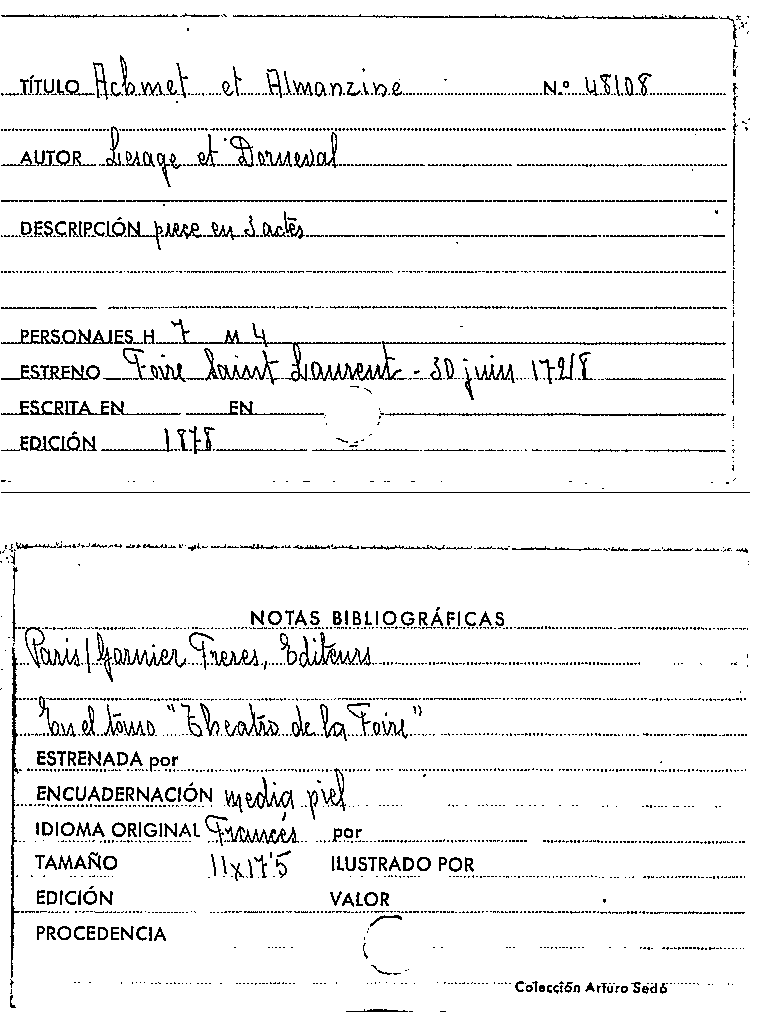 TÍTULO Achmet et Almanzine N.º 48108
AUTOR Lesage et Dorneval
DESCRIPCIÓN piece en 3 actes
PERSONAJES H 7 M 4
ESTRENO Foire Saint Laurent - 30 juin 1728
ESCRITA EN EN
EDICIÓN 1878
NOTAS BIBLIOGRÁFICAS
Paris/Garnier Freres, Editeurs
En el tomo "Theatro de la Foire"
ESTRENADA por
ENCUADERNACIÓN media piel
IDIOMA ORIGINAL Francés por
TAMAÑO 11x17'5 ILUSTRADO POR
EDICIÓN VALOR
PROCEDENCIA
Colección Arturo Sedó